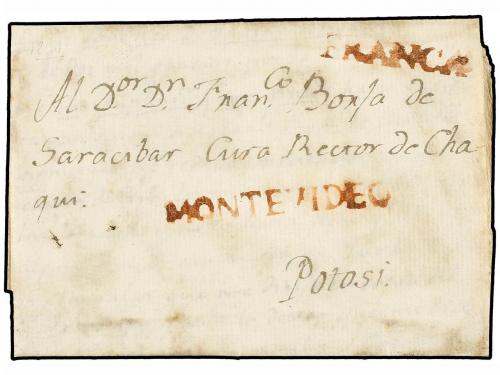 FRANCA
Al D.or D.n Fran.co Borja de
Saracibar Cura Rector de Cha-
qui.
MONTEVIDEO
Potosi.